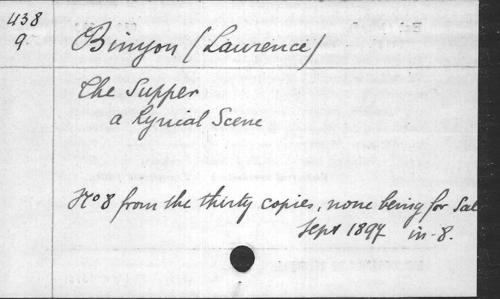 438
9.
Binyon (Laurence)
The Supper
a Lyrical Scene
No 8 from the thirty copies, none being for Sal
Sept 1897 in-8.